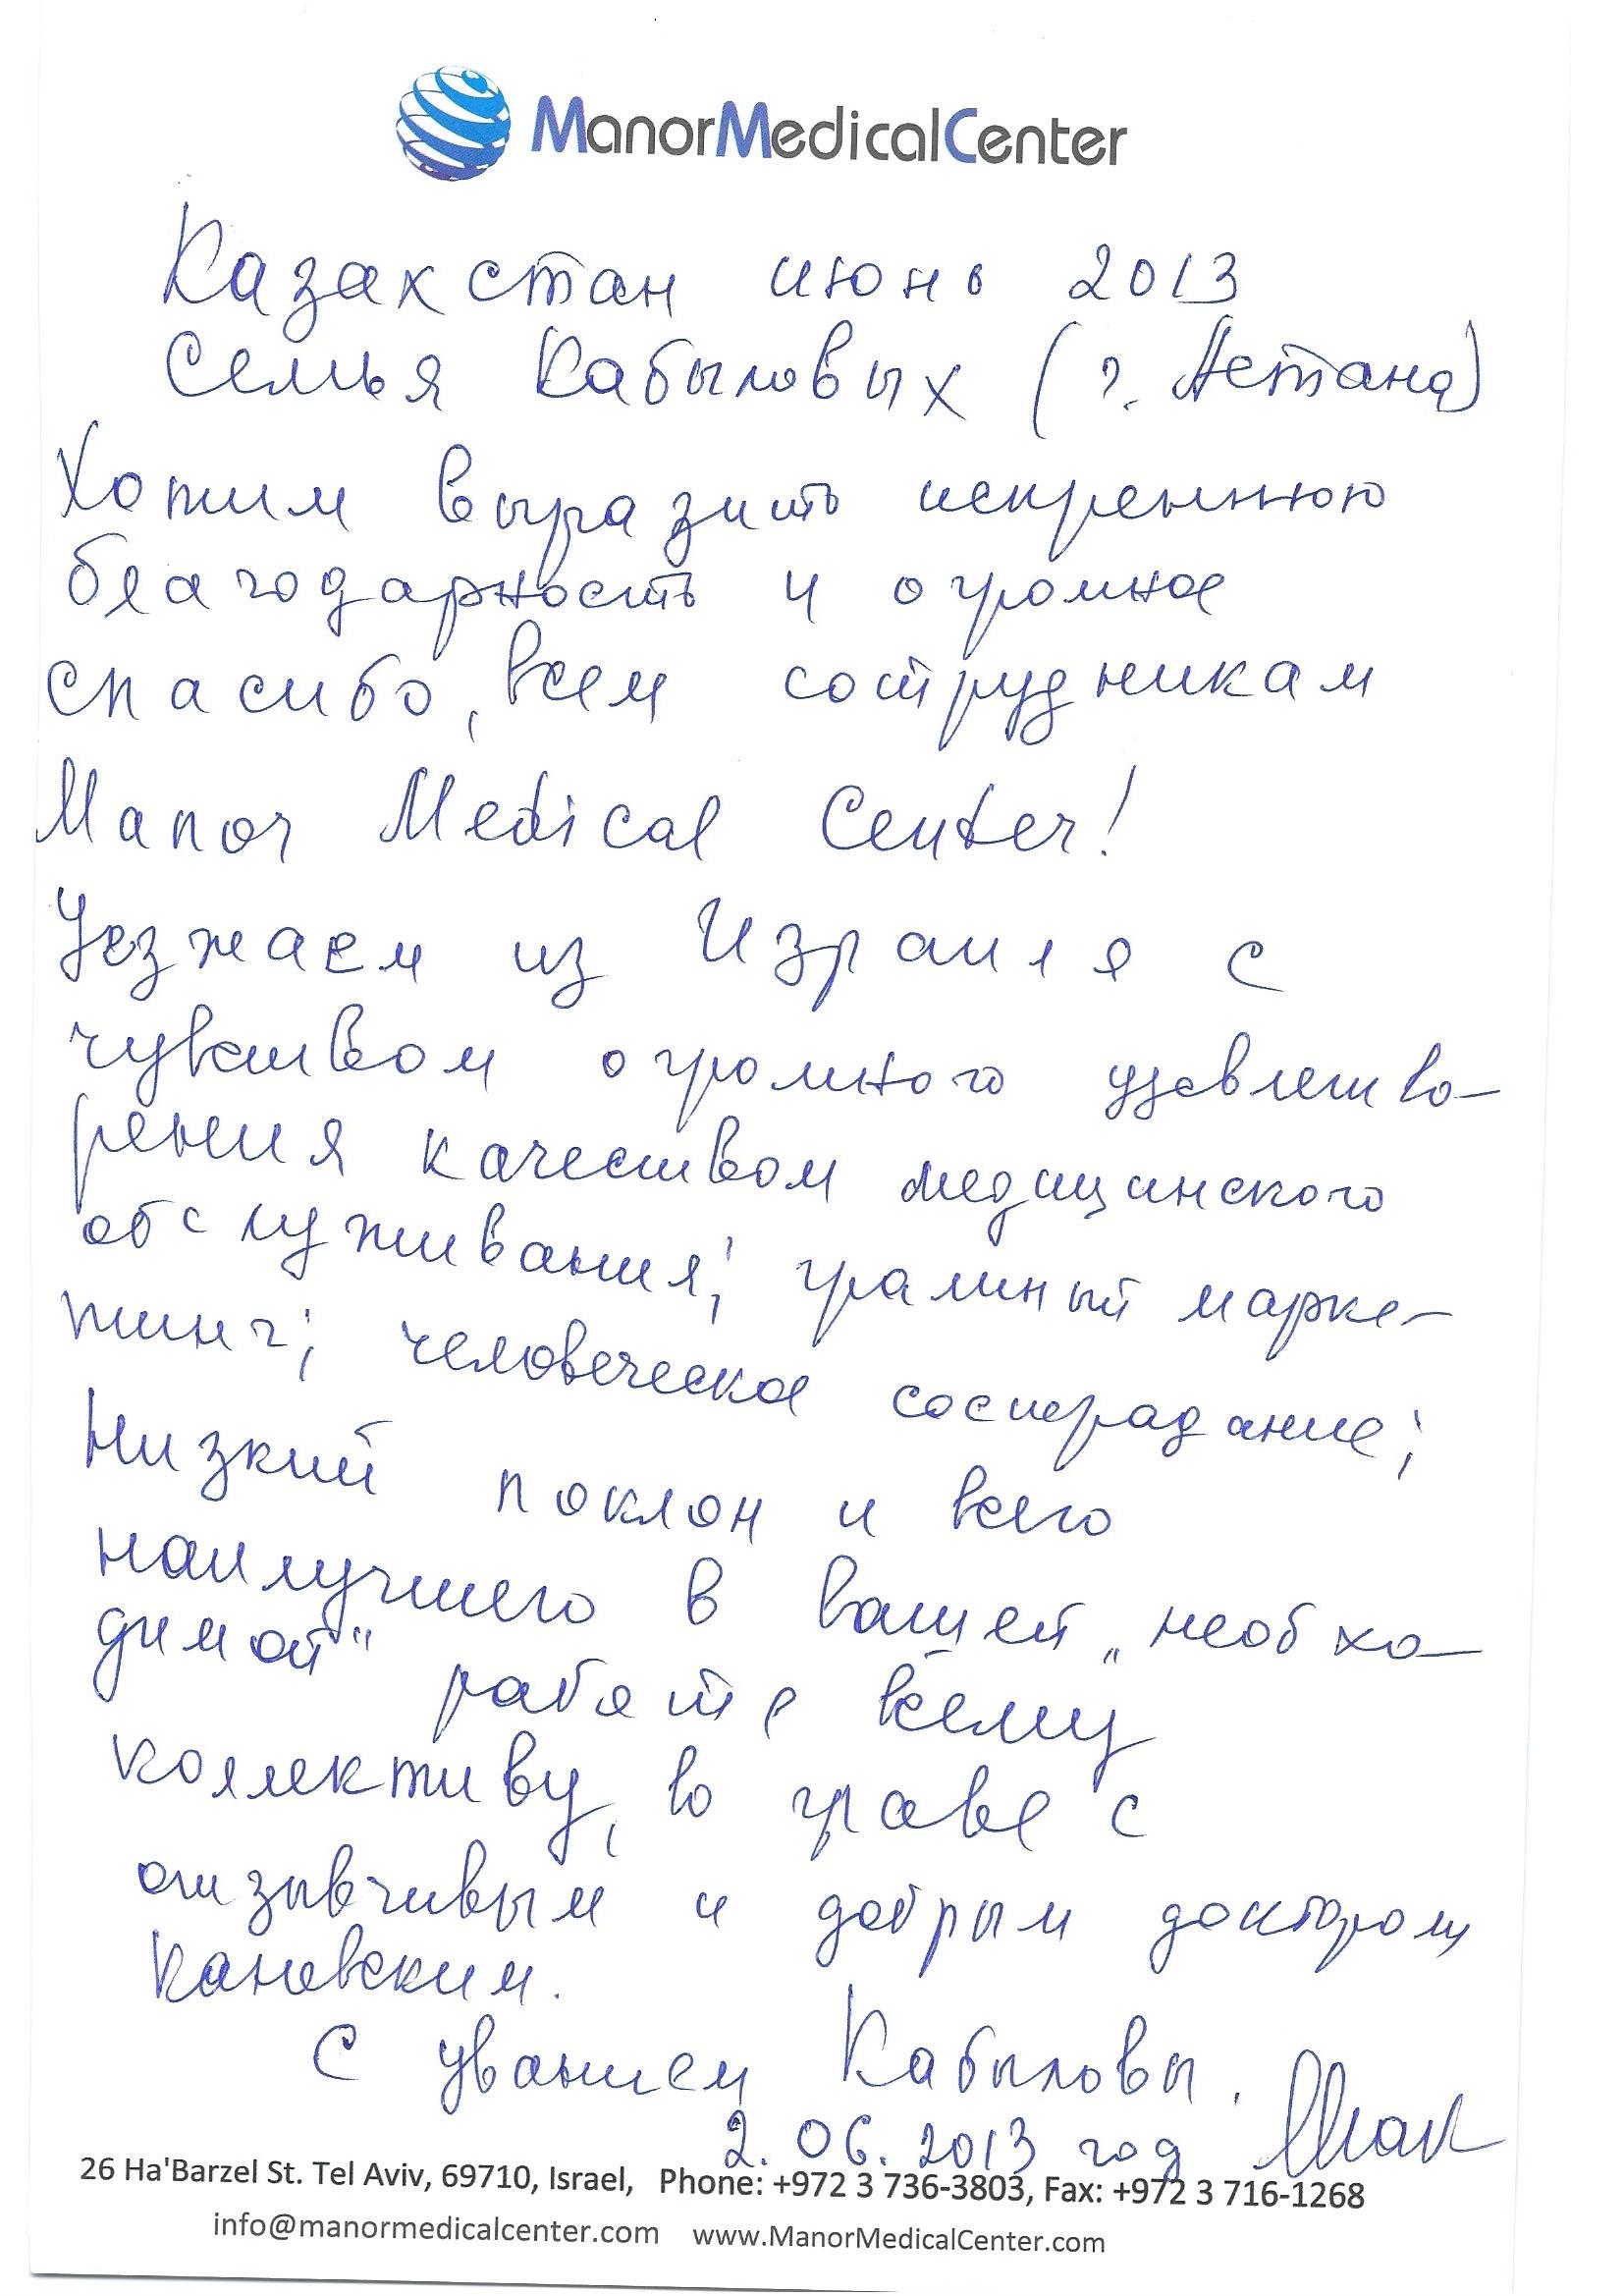 ManorMedicalCenter
Казахстан июнь 2013
Семья Кабыловых (г. Астана)
Хотим выразить искреннюю
благодарность и огромное
спасибо, всем сотрудникам
Manor Medical Center!
Уезжаем из Израиля с
чувством огромного удовлетво-
рения качеством медицинского
обслуживания; грамный марке-
тинг; человеческое сострадание;
Низкий поклон и всего
наилучшего в вашей „необхо-
димой" работе всему
коллективу, во граве с
отзывчивым и добрым доктором
Кановским.
С уванием Кабыловы.
2.06.2013 год
26 Ha'Barzel St. Tel Aviv, 69710, Israel, Phone: +972 3 736-3803, Fax: +972 3 716-1268
info@manormedicalcenter.com www.ManorMedicalCenter.com